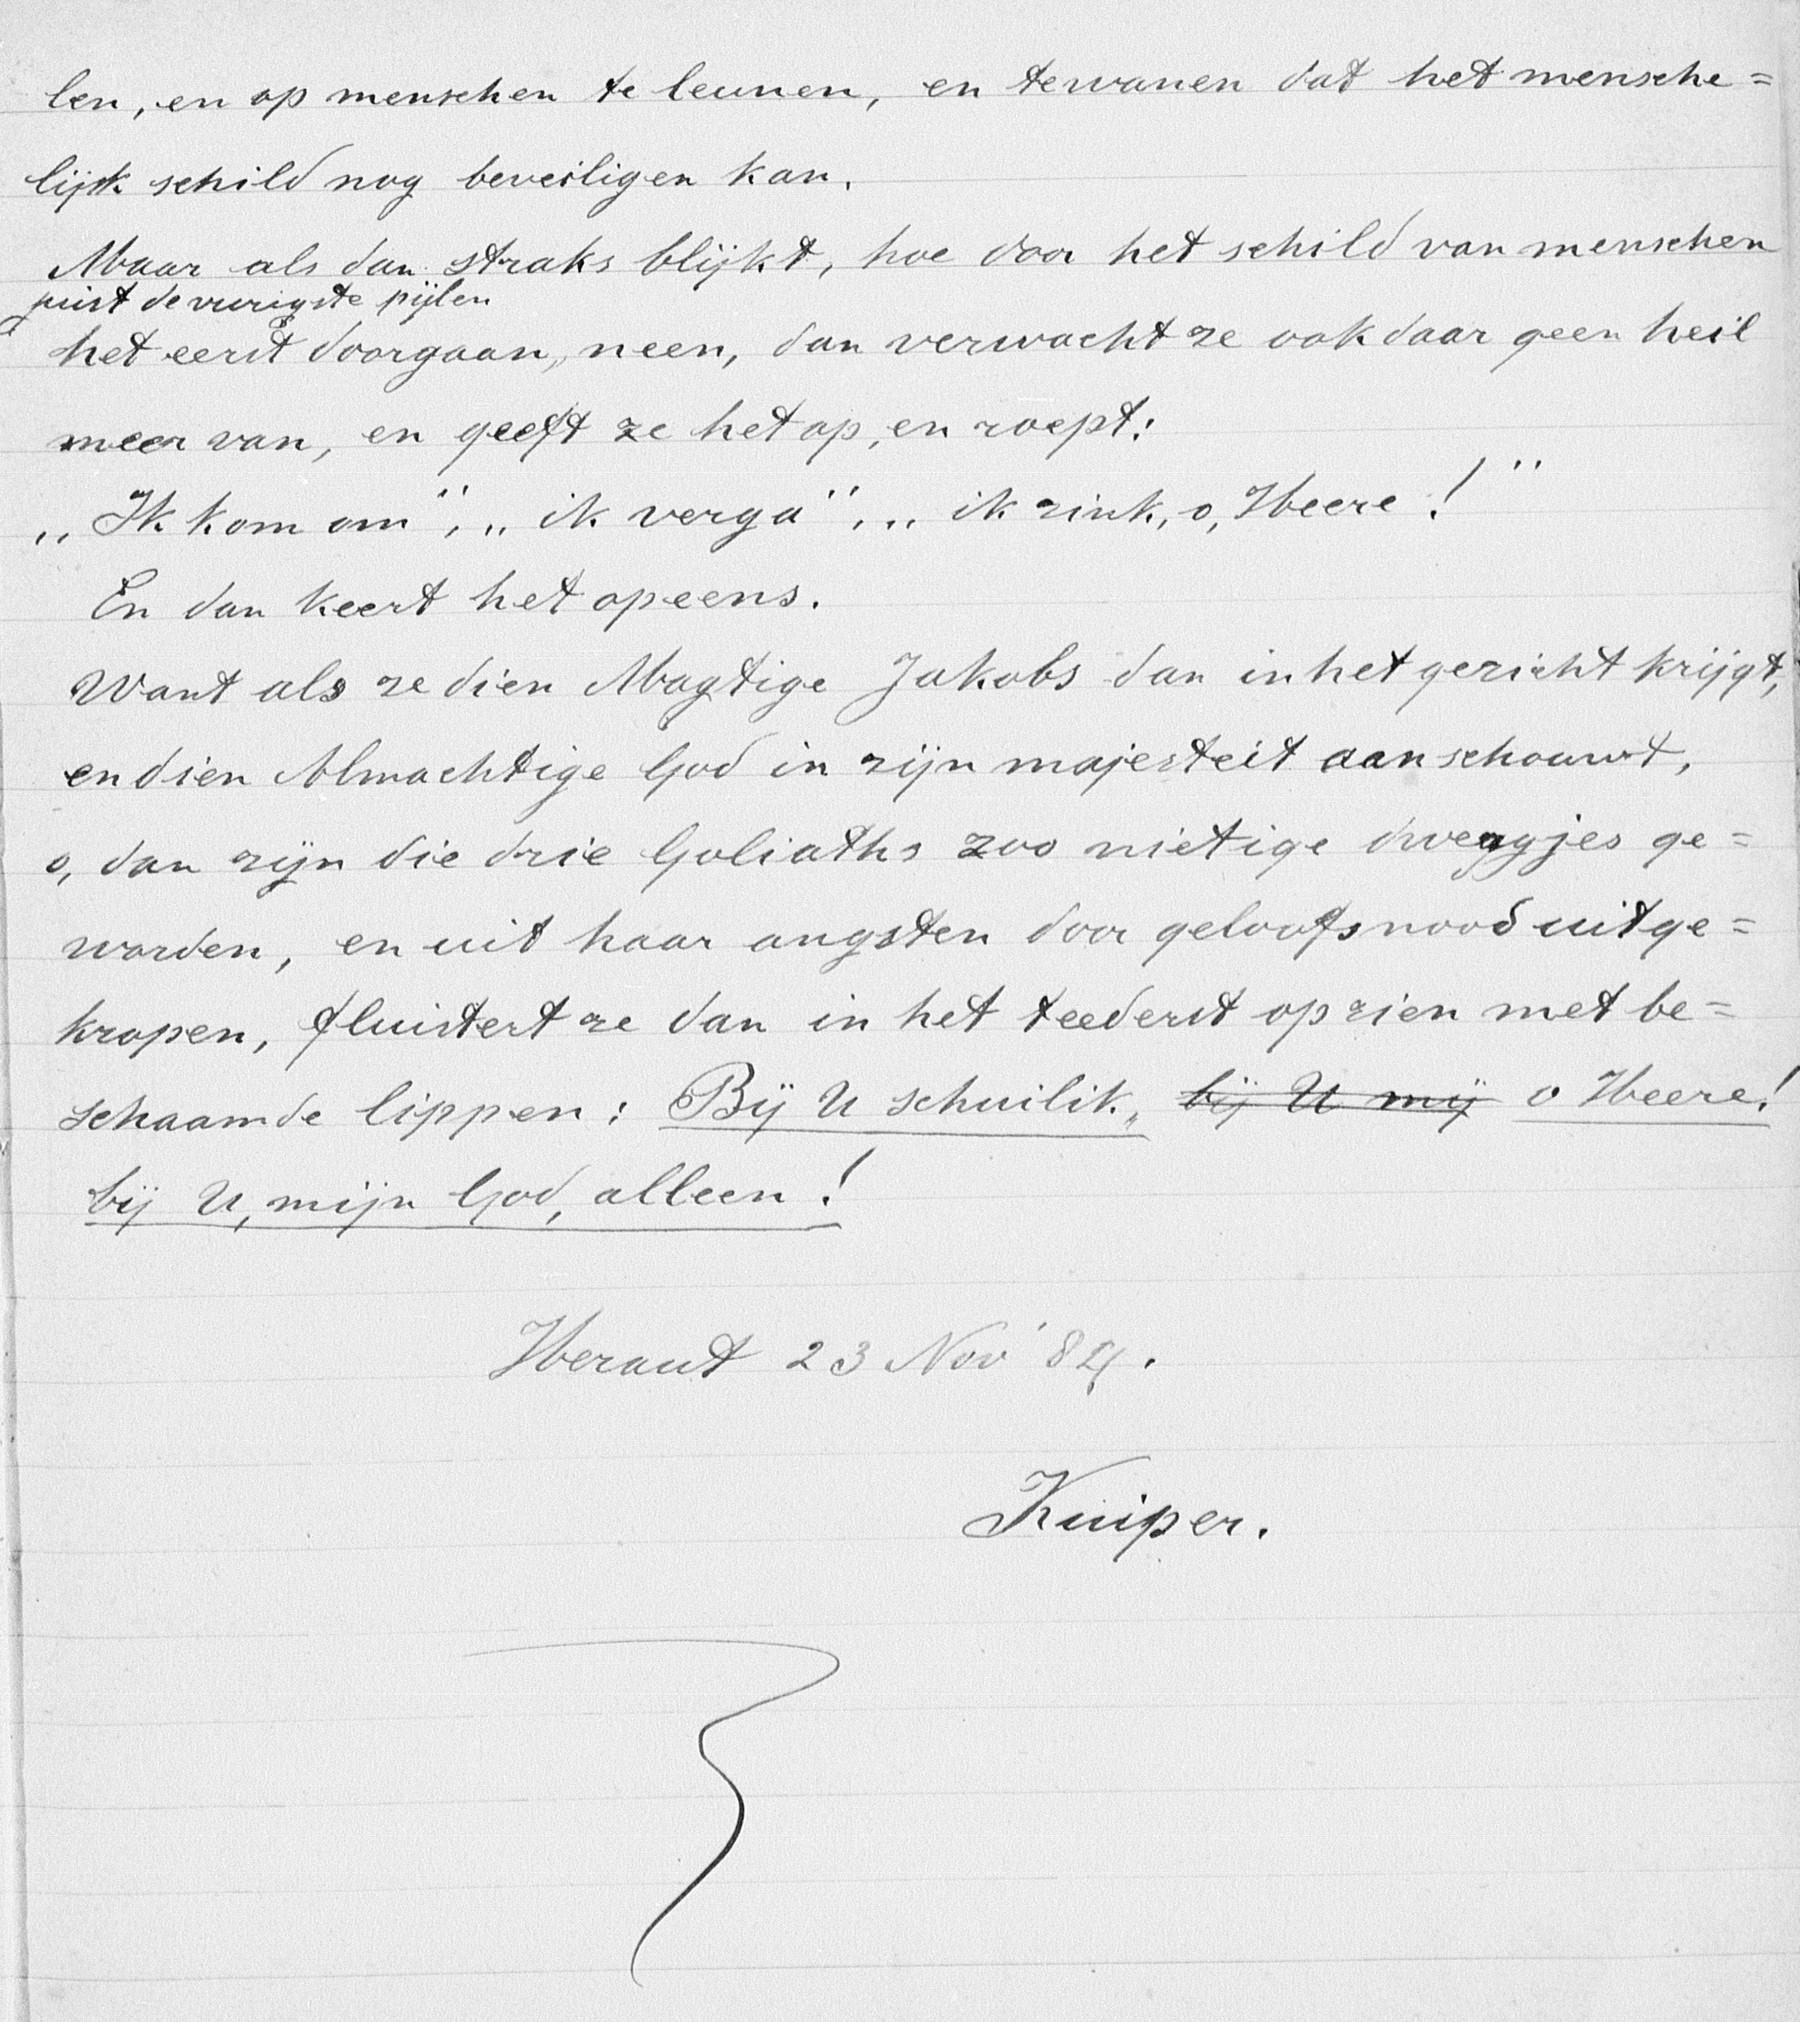 len, en op menschen te leunen, en te wanen dat het mensche=
lijk schild nog beveiligen kan.
Maar als dan straks blijkt, hoe door het schild van menschen
juist de vurigste pijlen
het eerst doorgaan, neen, dan verwacht ze ook daar geen heil
meer van, en geeft ze het op, en roept:
„Ik kom om", „ik verga", „ik zink, o, Heere!"
En dan keert het opeens.
Want als ze dien Magtige Jakobs dan in het gezicht krijgt,
en dien Almachtige God in zijn majesteit aanschouwt,
o, dan zijn die drie Goliaths zoo nietige dwergjes ge=
worden, en uit haar angsten door geloofsnood uitge=
kropen, fluistert ze dan in het teederst opzien met be=
schaamde lippen: Bij U schuil ik, bij U mij o Heere!
bij U, mijn God, alleen!
Heraut 23 Nov '84.
Kuiper.